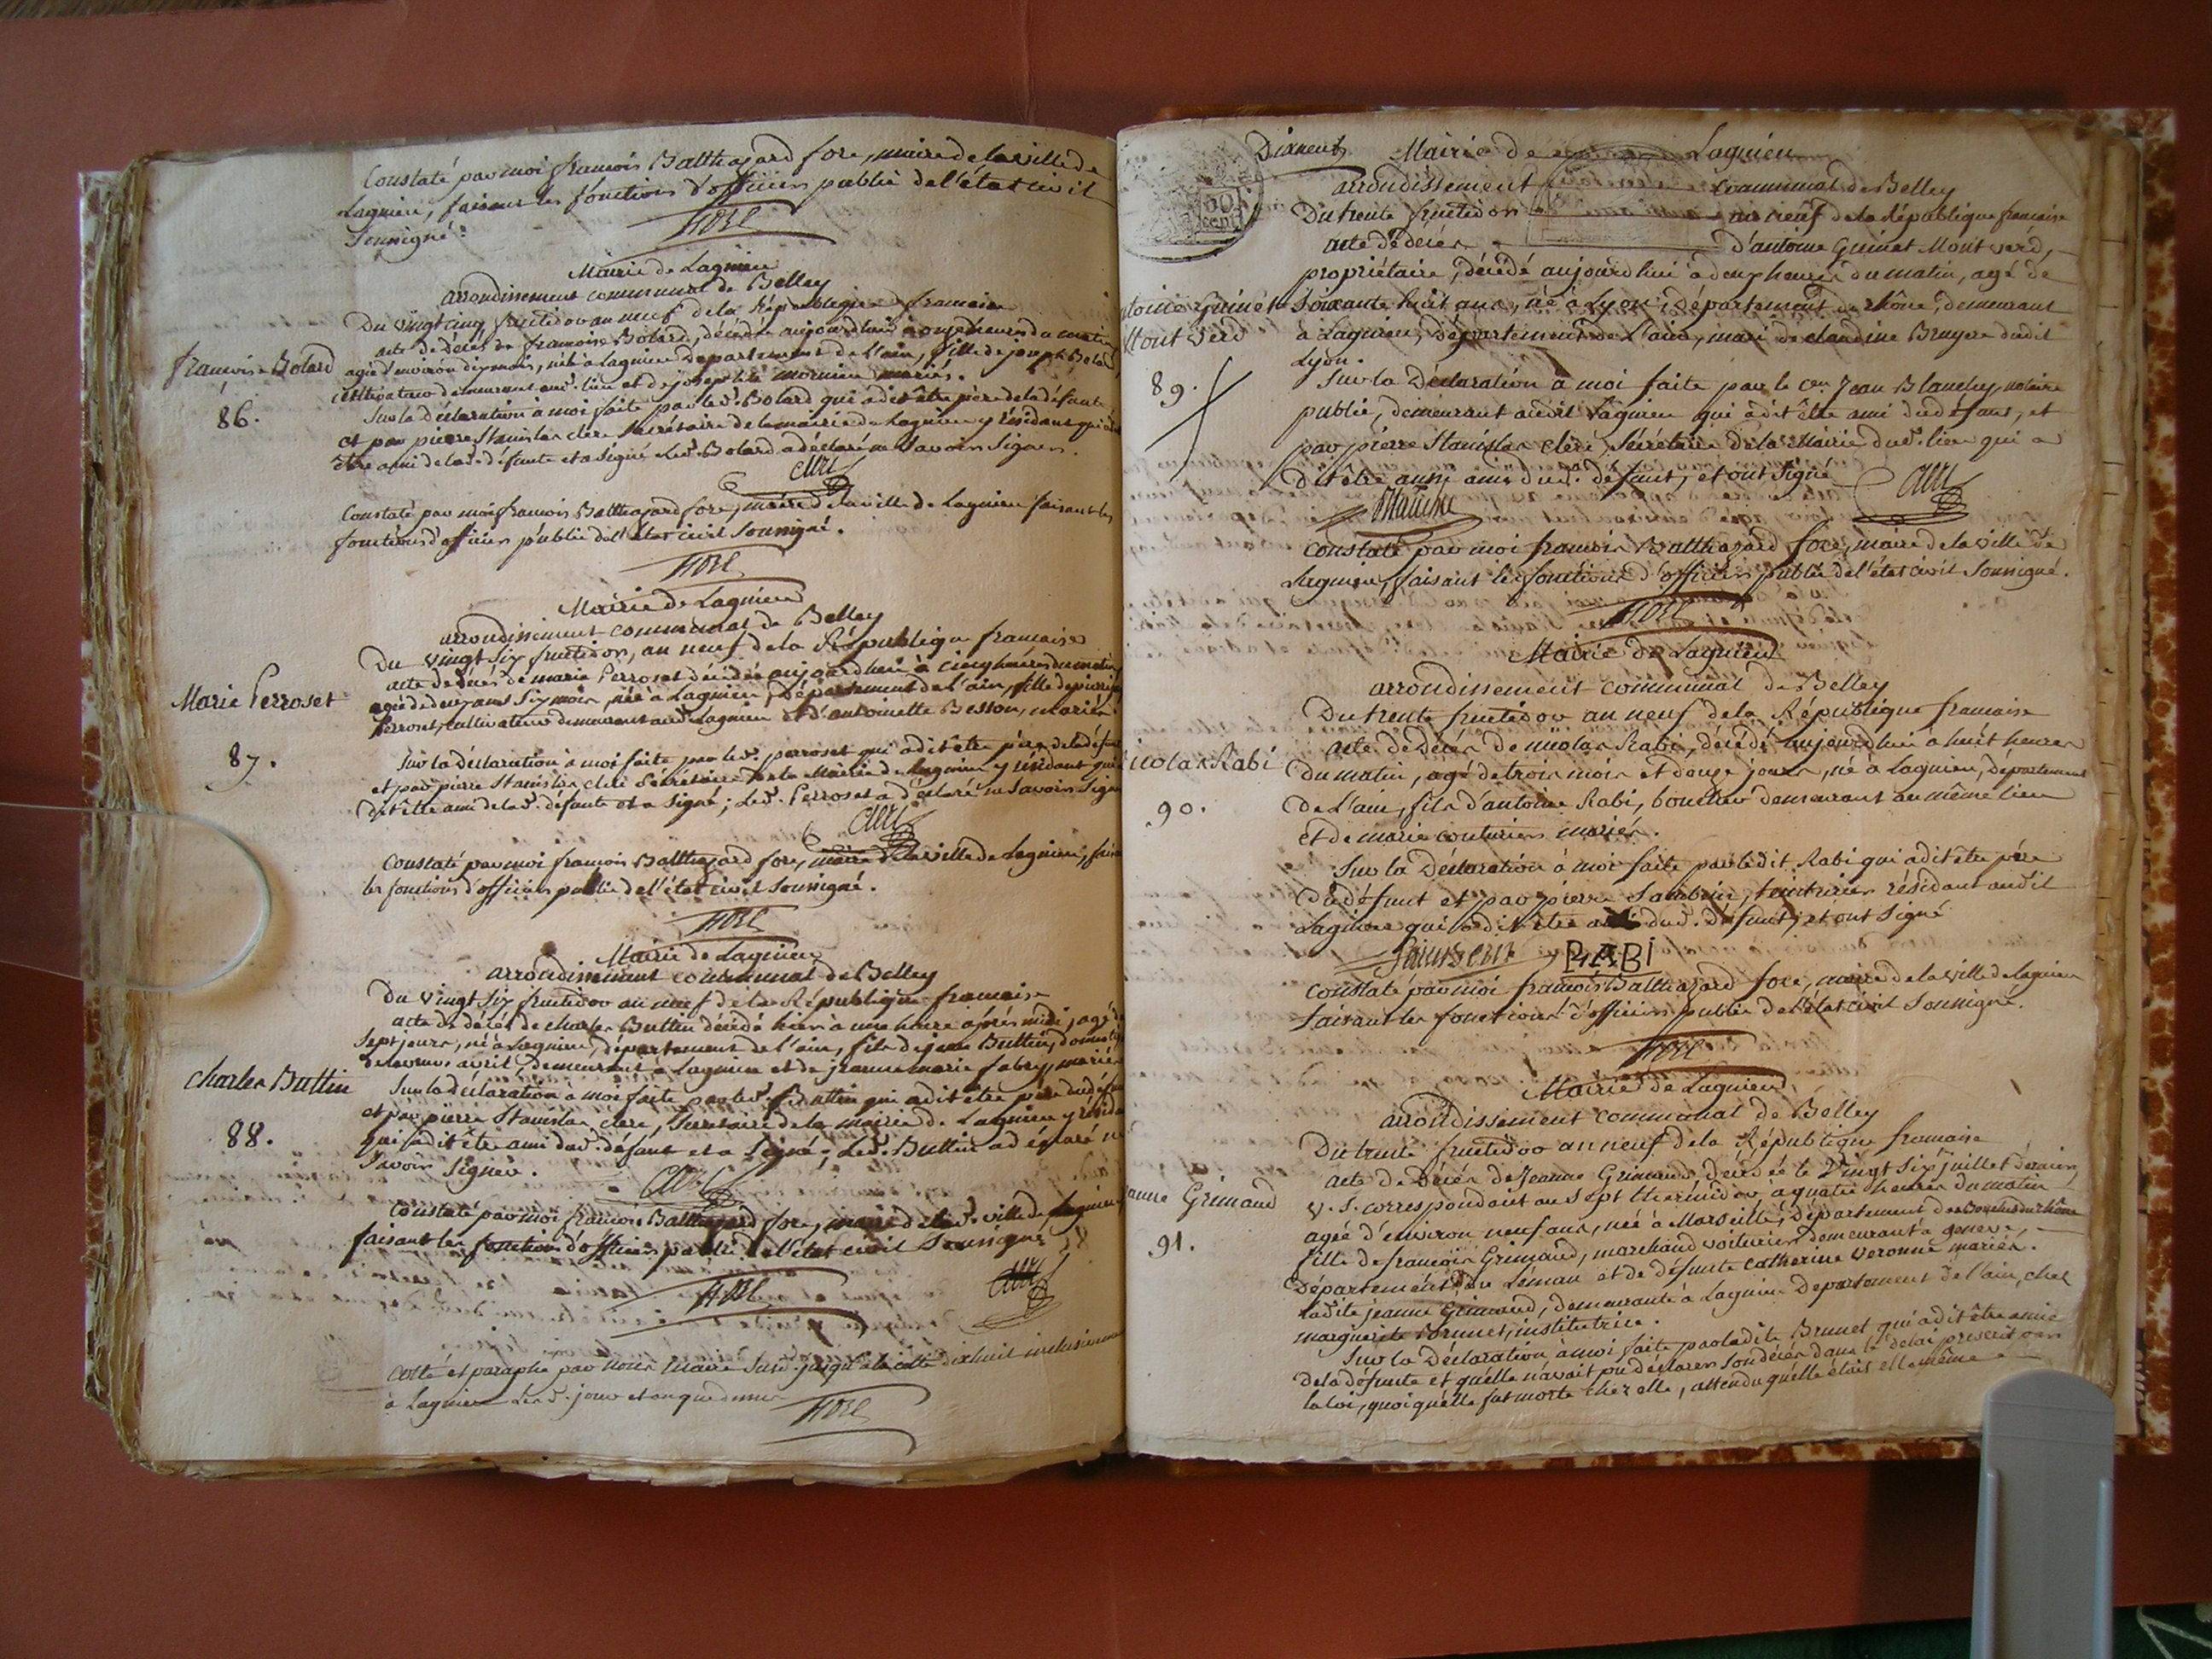 Constaté par moi françois Balthazard fore, maire de la ville de
Lagnieu, faisant les fonctions d'officier public de l'état civil
soussigné.
FORE
Mairie de Lagnieu
arrondissement communal de Belley
Du vingt cinq fructidor an neuf de la République francaise
acte de décès de francoise Bolard, décédée aujourd'hui à onze heures du matin
agée d'environ dix mois, née à Lagnieu département de l'ain, fille de joseph Bolard,
cultivateur demeurant aud. lieu et de josephte mornieu mariés.
françoise Bolard
86.
Sur la déclaration à moi faite par led. Bolard qui a dit être père de la défunte
et par pierre Stanislas clerc secrétaire de la mairie de Lagnieu y résidant qui a dit
être ami de lad. défunte et a signé led. Bolard a déclaré ne savoir signer.
Clerc
Constaté par moi françois Balthazard fore, maire de la ville de Lagnieu faisant les
fonctions d'officier public de l'état civil soussigné.
FORE
Mairie de Lagnieu
arrondissement communal de Belley
Du vingt six fructidor, an neuf de la République francaise
acte de décès de marie Perroset décédée aujourd'hui à cinq heures du matin
agée de deux ans six mois, née à Lagnieu, département de l'ain, fille de pierre
Perroset, cultivateur demeurant aud. Lagnieu et d'antoinette Besson, mariés.
Marie Perroset
87.
Sur la déclaration à moi faite par led. perroset qui a dit être père de la défunte
et par pierre Stanislas clerc Secrétaire de la Mairie de Lagnieu y résidant qui a
dit être ami de lad. défunte et a signé; Led. Perroset a déclaré ne savoir signer
Clerc
Constaté par moi françois Balthazard fore, maire de la ville de Lagnieu, faisant
les fonctions d'officier public de l'état civil soussigné.
FORE
Mairie de Lagnieu
arrondissement communal de Belley
Du vingt six fructidor an neuf de la République francaise
acte de décès de charles Buttin décédé hier à une heure après midi, agé de
sept jours, né à Lagnieu, département de l'ain, fils de jean Buttin, domestique
demeurant à Lagnieu et de jeanne marie fabry, mariés
charles Buttin
88.
Sur la déclaration à moi faite par led. Buttin qui a dit être père du défunt
et par pierre Stanislas clerc, Secretaire de la mairie de Lagnieu y résidant
qui a dit être ami dud. défunt et a signé; Led. Buttin a déclaré ne
savoir signer.
Clerc
Constaté par moi françois Balthazard fore, maire de lad. ville de Lagnieu
faisant les fonctions d'officier public de l'état civil soussigné
FORE
Clerc
Cotté et paraphé par nous Maire Susd. jusqu'à la cotte dixhuit inclusivement
à Lagnieu Lesd. jour et an que dessus
FORE
Dixneuf
50
cent
Mairie de Lagnieu
arrondissement communal de Belley
Du trente fructidor an neuf de la République francaise
acte de décès d'antoine Guinet Mont verd,
propriétaire, décédé aujourd'hui à deux heures du matin, agé de
soixante huit ans, né à Lyon, Département du rhône, demeurant
à Lagnieu, Département de l'ain, mari de claudine Bruyere dudit
Lyon.
toine Guinet
Mont verd
89.
Sur la Déclaration à moi faite par le cen. Jean Blanchy, notaire
public, demeurant audit Lagnieu qui a dit être ami du défunt, et
par pierre Stanislas clerc, Secrétaire de la Mairie dud. lieu qui a
dit être aussi ami dud. défunt, et ont signé
Clerc
Constaté par moi françois Balthazard fore, maire de la ville de
Lagnieu, faisant les fonctions d'officier public de l'état civil soussigné.
FORE
Mairie de Lagnieu
arrondissement communal de Belley
Du trente fructidor an neuf de la République francaise
acte de décès de nicolas Rabi, décédé aujourd'hui à huit heures
du matin, agé de trois mois et douze jours, né à Lagnieu, département
de l'ain, fils d'antoine Rabi, boucher demeurant au même lieu
et de marie couturier mariés.
icolas Rabi
90.
Sur la Déclaration à moi faite par ledit Rabi qui a dit être père
du défunt et par pierre teinturier résidant audit
Lagnieu qui a dit être ami dud. défunt, et ont signé
RABI
Constaté par moi françois Balthazard fore, maire de la ville de Lagnieu
faisant les fonctions d'officier public de l'état civil soussigné.
FORE
Mairie de Lagnieu
arrondissement communal de Belley
Du trente fructidor an neuf de la République francaise
acte de décès de Jeanne Grimaud, décédée le vingt six juillet dernier,
v. s. correspondant au sept thermidor, à quatre heures du matin
agée d'environ neuf ans, née à Marseille, département des Bouches du rhône
fille de françois Grimaud, marchand voiturier, demeurant à geneve,
Département du Léman et de défunte catherine veronne mariés.
Ladite jeanne Grimaud, demeurante à Lagnieu département de l'ain, chez
marguerite Brunet, institutrice.
anne Grimaud
91.
Sur la Déclaration à moi faite par ladite Brunet qui a dit être amie
de la défunte et qu'elle n'avait pu déclarer son décès dans le délai prescrit par
la loi, quoiqu'elle fut morte chez elle, attendu qu'elle était elle même